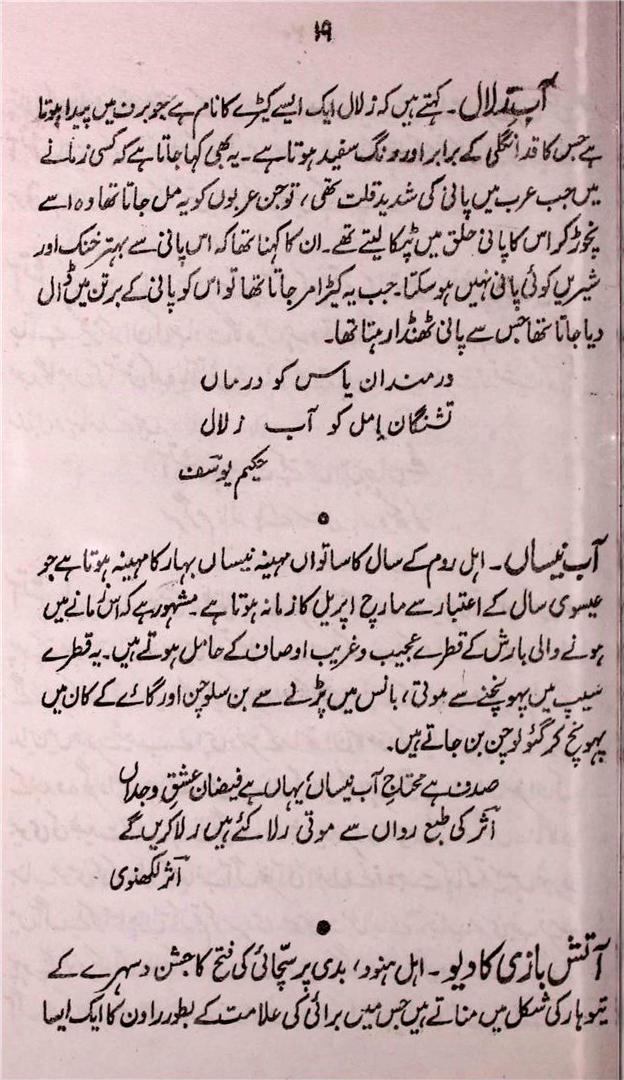 ۱۹
آب زلال ۔ کہتے ہیں کہ زلال ایک ایسے کیڑے کا نام ہے جو برف میں پیدا ہوتا
ہے جس کا قد انگلی کے برابر اور رنگ سفید ہوتا ہے ۔ یہ بھی کہا جاتا ہے کہ کسی زمانے
میں جب عرب میں پانی کی شدید قلت تھی ، تو جن عربوں کو یہ مل جاتا تھا وہ اسے
نچوڑ کر اس کا پانی حلق میں ٹپکا لیتے تھے ۔ ان کا کہنا تھا کہ اس پانی سے بہتر خنک اور
شیریں کوئی پانی نہیں ہو سکتا ۔ جب یہ کیڑا مر جاتا تھا تو اس کو پانی کے برتن میں ڈال
دیا جاتا تھا جس سے پانی ٹھنڈا رہتا تھا ۔
درمندان یاس کو درماں
تشنگان امل کو آب زلال
حکیم یوسف
آب نیساں ۔ اہل روم کے سال کا ساتواں مہینہ نیساں بہار کا مہینہ ہوتا ہے جو
عیسوی سال کے اعتبار سے مارچ اپریل کا زمانہ ہوتا ہے ۔ مشہور ہے کہ اس زمانے میں
ہونے والی بارش کے قطرے عجیب و غریب اوصاف کے حامل ہوتے ہیں ۔ یہ قطرے
سیپ میں پہونچنے سے موتی ، بانس میں پڑنے سے بن سلوچن اور گائے کے کان میں
پہونچ کر گئو لوچن بن جاتے ہیں ۔
صدف ہے محتاج آب نیساں یہاں ہے فیضان عشق و جداں
اثر کی طبع رواں سے موتی رلا کئے ہیں رلا کریں گے
اثر لکھنوی
آتش بازی کا دیو ۔ اہل ہنود ، بدی پر سچائی کی فتح کا جشن دسہرے کے
تیوہار کی شکل میں مناتے ہیں جس میں برائی کی علامت کے بطور راون کا ایک ایسا